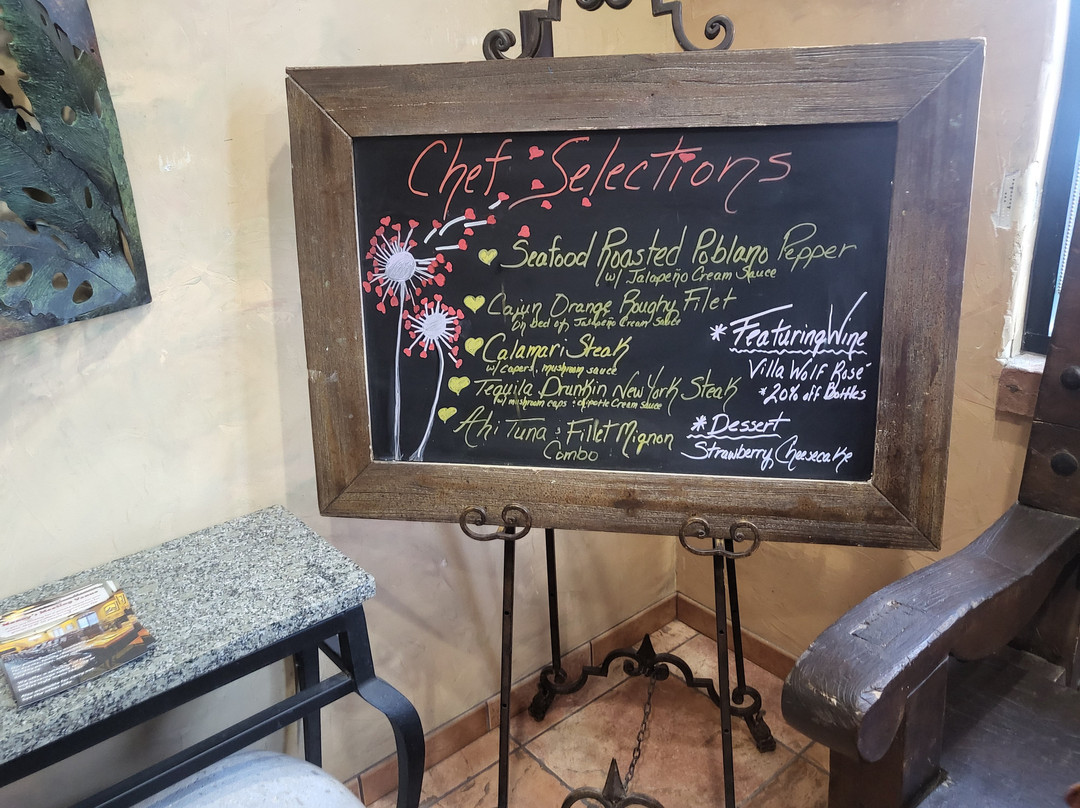 Chef Selections
Seafood Roasted Poblano Pepper
w/ Jalapeño Cream Sauce
Cajun Orange Roughy Filet
On Bed of Jalapeño Cream Sauce
Calamari Steak
w/ capers, mushroom sauce
Tequila Drunkin New York Steak
w/ mushroom caps & chipotle Cream Sauce
Ahi Tuna & Fillet Mignon
Combo
* Featuring Wine
Villa Wolf Rosé
* 20% off Bottles
* Dessert
Strawberry Cheesecake